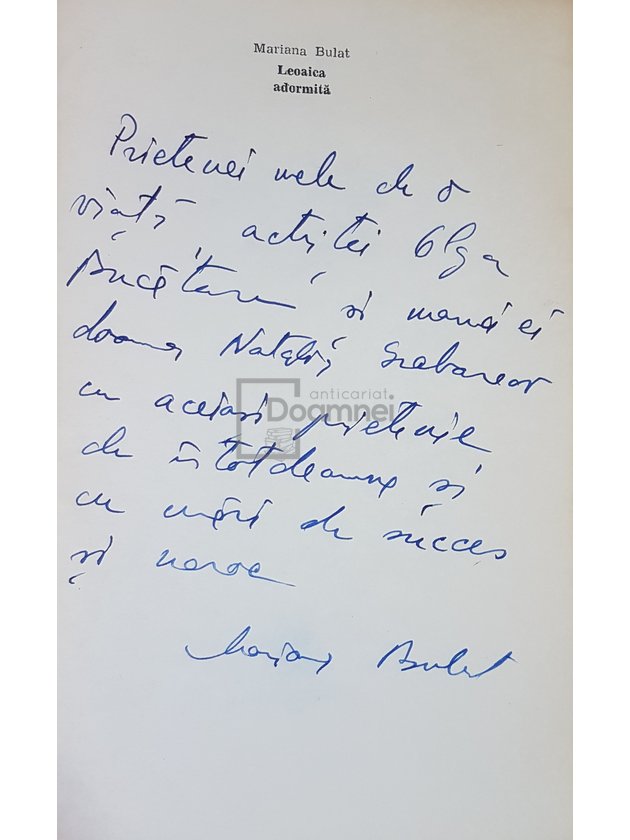 Mariana Bulat
Leoaica
adormită
Prietenei mele de o
viață actriței Olga
Bucătaru și mamei ei
doamna Natalia
anticariat
Doamnei
cu aceiași prietenie
de întotdeauna și
cu urări de succes
și noroc
Mariana Bulat